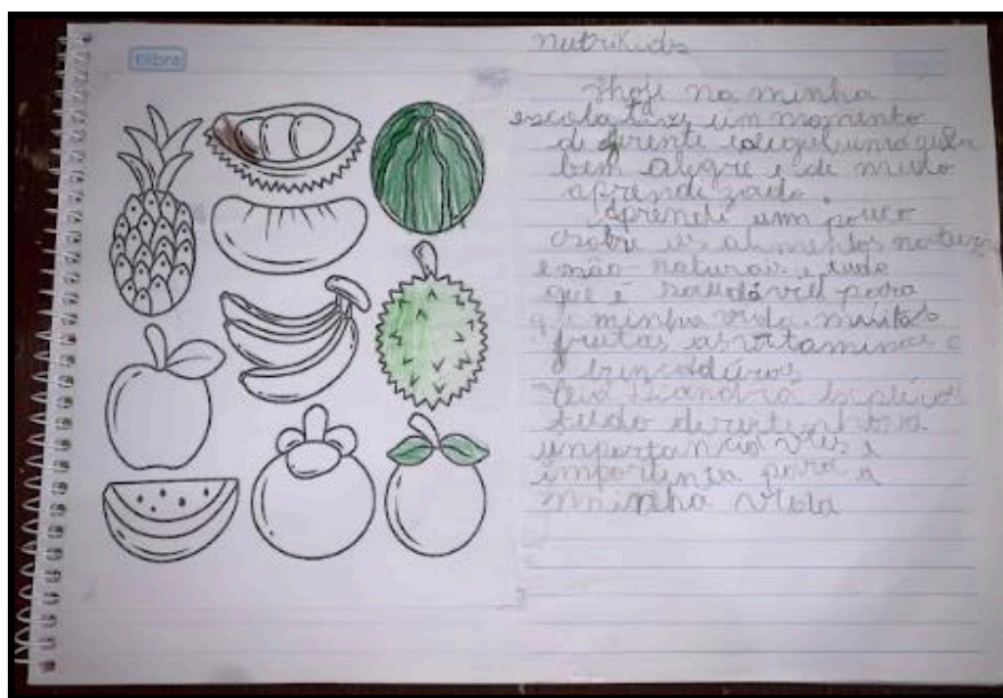 tilibra
Nutrikids
Hoje na minha
escola tive um momento
diferente e legal uma aula
bem alegre e de muito
aprendizado.
Aprendi um pouco
sobre os alimentos
e não-naturais e tudo
que é saudável para
minha vida. muitas
frutas as vitaminas e
brincadeiras
tudo
importancia e
importenta para a
minha vida